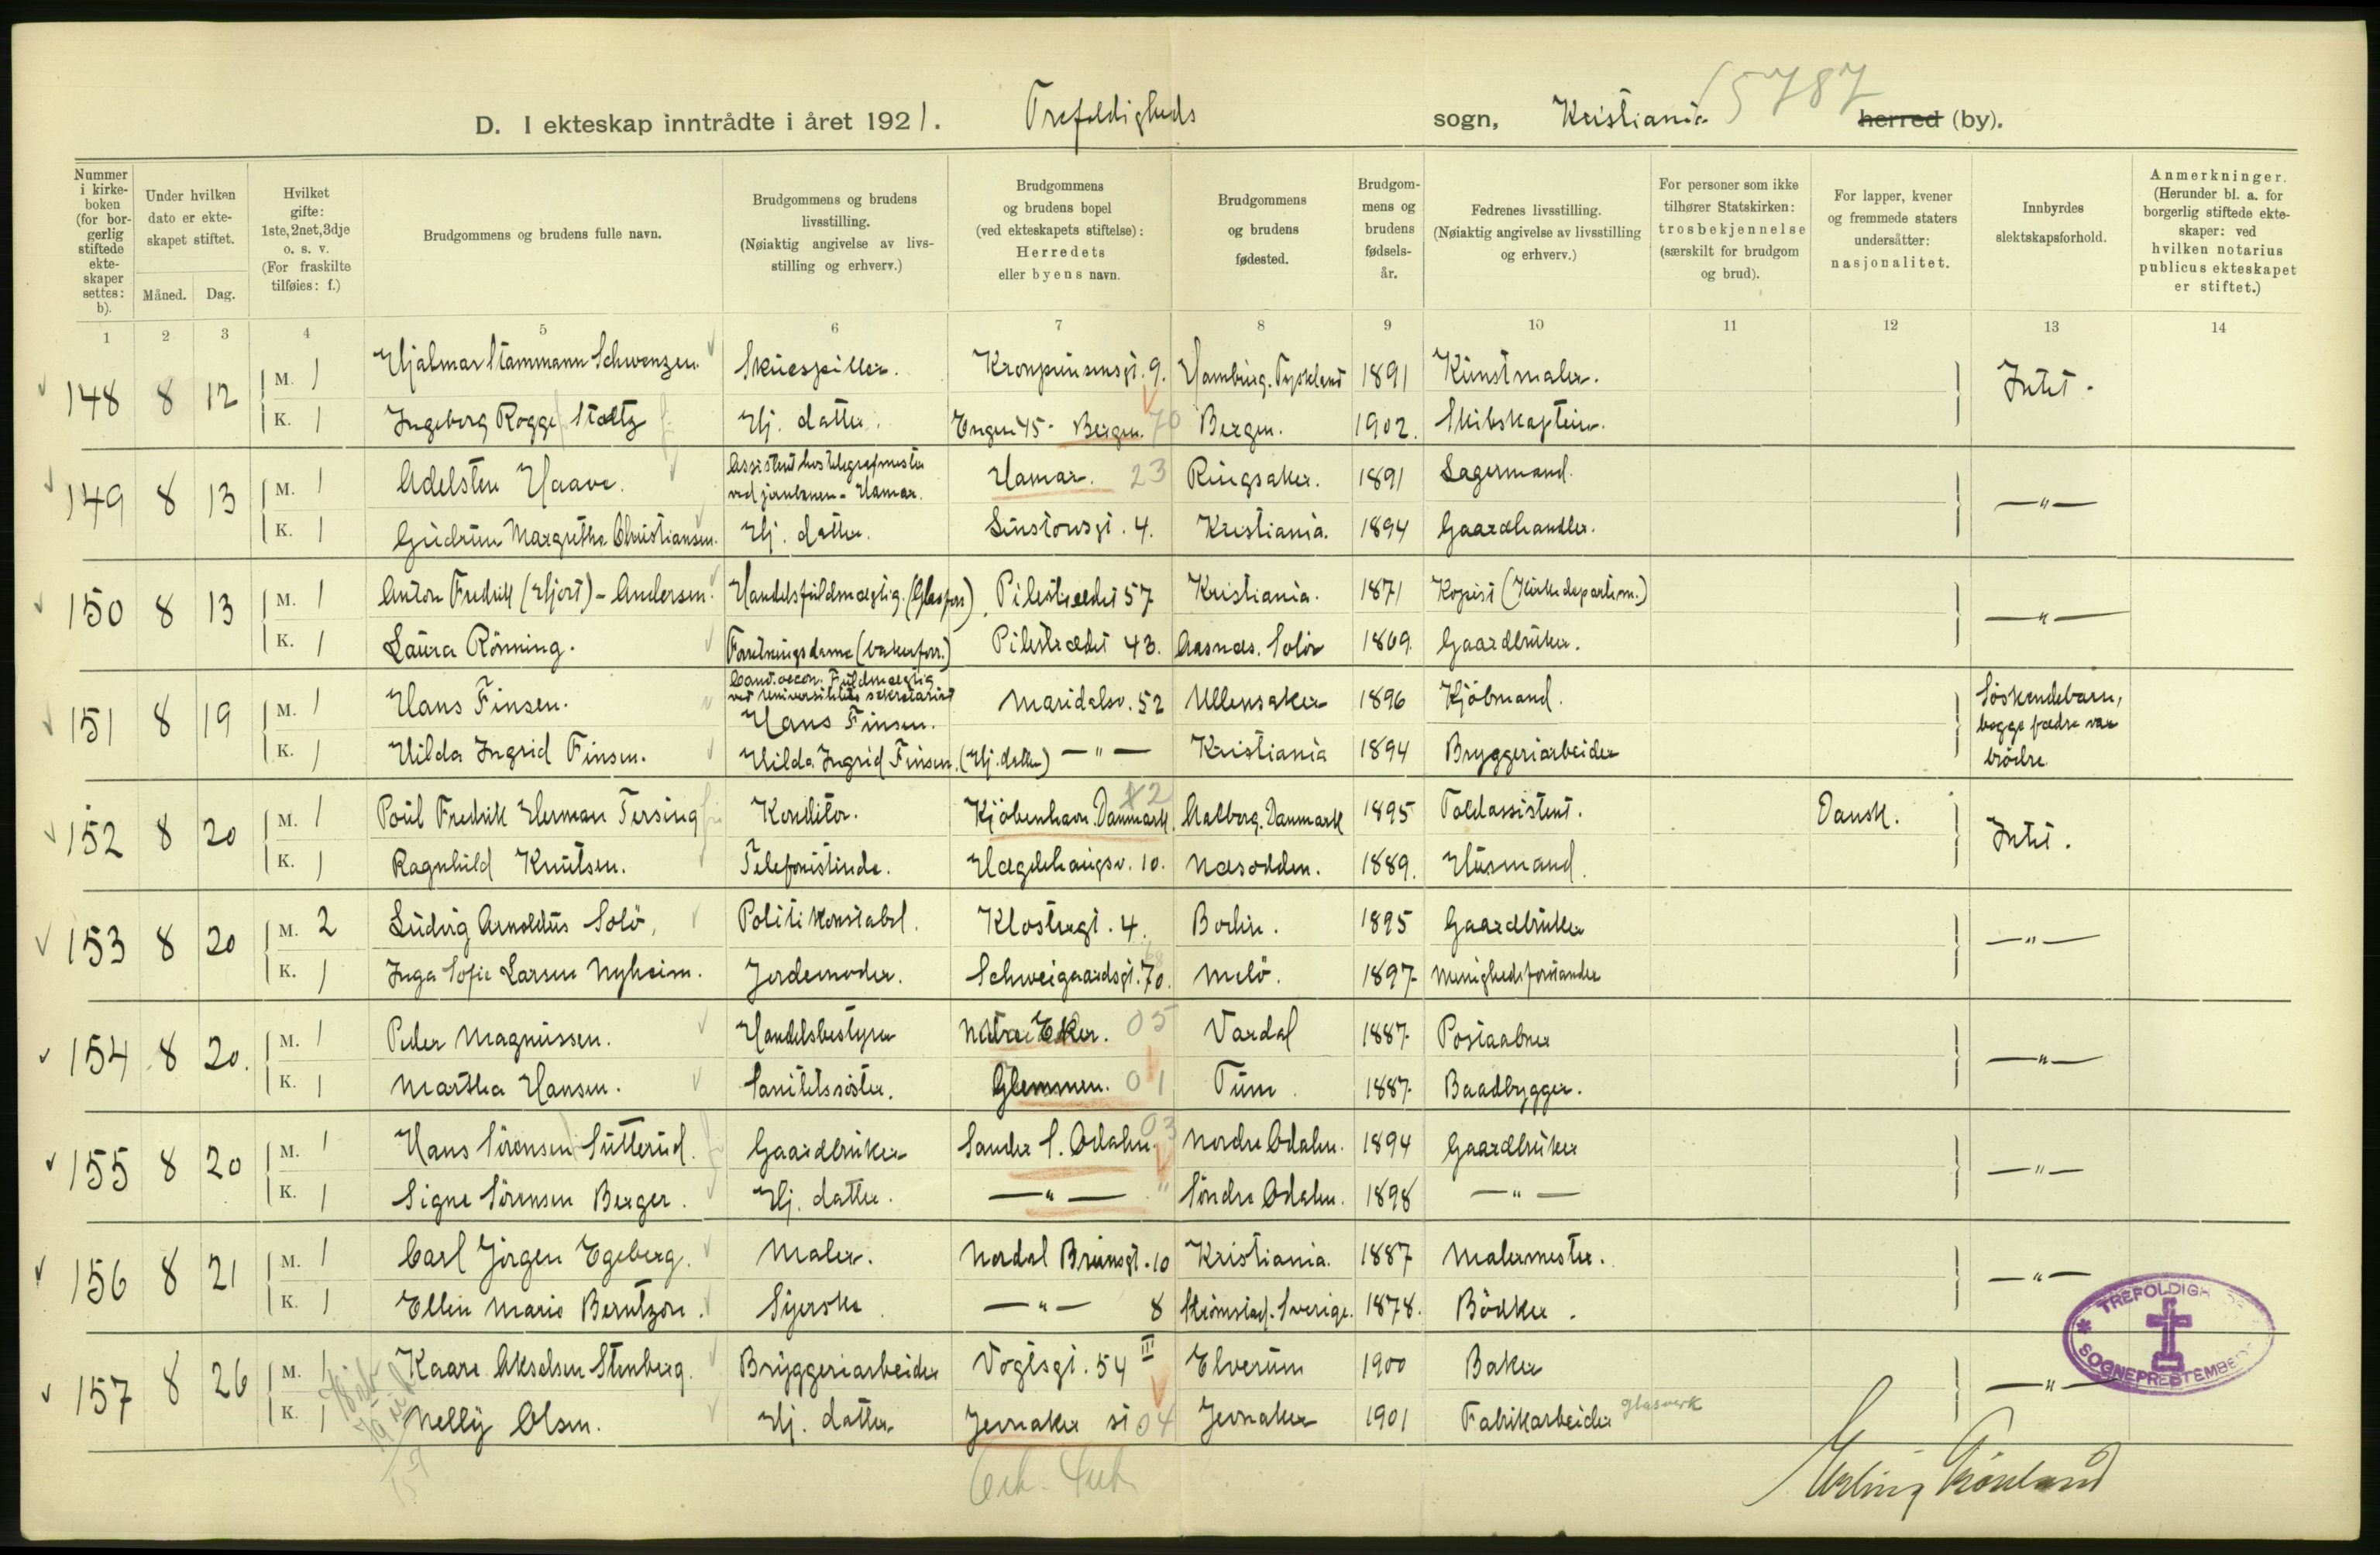 15787
D. I ekteskap inntrådte i året 1921. Trefoldigheds sogn, Kristiania herred (by).
Nummer i kirkeboken (for borgerlig stiftede ekteskaper settes: b).
Under hvilken dato er ekteskapet stiftet.
Måned. Dag.
Hvilket gifte: 1ste, 2net, 3dje o. s. v. (For fraskilte tilføies: f.)
Brudgommens og brudens fulle navn.
Brudgommens og brudens livsstilling. (Nøiaktig angivelse av livsstilling og erhverv.)
Brudgommens og brudens bopel (ved ekteskapets stiftelse): Herredets eller byens navn.
Brudgommens og brudens fødested.
Brudgommens og brudens fødselsår.
Fedrenes livsstilling. (Nøiaktig angivelse av livsstilling og erhverv.)
For personer som ikke tilhører Statskirken: trosbekjennelse (særskilt for brudgom og brud).
For lapper, kvener og fremmede staters undersåtter: nasjonalitet.
Innbyrdes slektskapsforhold.
Anmerkninger. (Herunder bl. a. for borgerlig stiftede ekteskaper: ved hvilken notarius publicus ekteskapet er stiftet.)
1 2 3 4 5 6 7 8 9 10 11 12 13 14
148 8 12 M. 1 Hjalmar Stammann Schwenzen. Skuespiller. Kronprinsensgt. 9. Hamburg. Tyskland 1891 Kunstmaler. Intet.
K. 1 Ingeborg Rogge Stoltz Hj. datter. Engen 45 - Bergen. 70 Bergen. 1902. Skibskaptein.
149 8 13 M. 1 Adelsten Haave. Assistent hos telegrafmester ved jernbanen - Hamar. Hamar. 23 Ringsaker. 1891 Lagermand. — " —
K. 1 Gudrun Margrethe Christiansen. Hj. datter. Linstowsgt. 4. Kristiania. 1894 Gaardhandler.
150 8 13 M. 1 Anton Fredrik (Hjort) - Andersen. Handelsfuldmægtig. (Glasforr) Pilestrædet 57 Kristiania. 1871 Kopist (Kirkedepartem.) — " —
K. 1 Laura Rönning. Forretningsdame (bakerforr.) Pilestrædet 43. Aasnæs. Solör 1869. Gaardbruker.
151 8 19 M. 1 Hans Finsen. Cand. oecon. Fuldmægtig ved Universitetets sekretariat Hans Finsen. Maridalsv. 52 Ullensaker 1896 Kjöbmand. Söskendebarn, begge fædre var brödre.
K. 1 Hilda Ingrid Finsen. Hilda Ingrid Finsen. (Hj. datter) — " — Kristiania 1894 Bryggeriarbeider
152 8 20 M. 1 Poul Fredrik Herman Tersing Konditor. Kjöbenhavn. Danmark. Aalborg. Danmark 1895 Toldassistent. Dansk. Intet.
K. 1 Ragnhild Knutsen. Telefonistinde. Hægdehaugsv. 10. Næsodden. 1889. Husmand.
153 8 20 M. 2 Ludvig Arnoldus Solö, Politikonstabel. Klostergt. 4. Bodin. 1895 Gaardbruker — " —
K. 1 Inga Sofie Larsen Nyheim. Jordemoder. Schweigaardsgt. 70. Melö. 1897. Menighedsforstander
154 8 20. M. 1 Peder Magnussen. Handelsbestyrer Nedre Eker. 05 Vardal 1887. Postaabner — " —
K. 1 Martha Hansen. Sanitetssöster. Glemmen. 01 Tune. 1887. Baadbygger.
155 8 20 M. 1 Hans Sörensen Sutterud. Gaardbruker Sander S. Odalen. 03 Nordre Odalen. 1894 Gaardbruker — " —
K. 1 Signe Sörensen Berger. Hj. datter. — " — " Söndre Odalen. 1898 — " —
156 8 21 M. 1 Carl Jörgen Egeberg. Maler. Nordal Brunsgt. 10 Kristiania. 1887 Malermester. — " —
K. 1 Ellin Marie Berntzon. Syerske. — " — 8 Strömstad. Sverige. 1878. Bödker.
157 8 26 M. 1 Kaare Akselsen Stenberg. Bryggeriarbeider Vogtsgt. 54 III Elverum 1900 Baker — " —
K. 1 Nelly Olsen. Hj. datter Jevnaker st 04 Jevnaker 1901 Fabrikarbeider glasverk
TREFOLDIGHEDS SOGNEPRESTEMBEDE
Erling Grönland